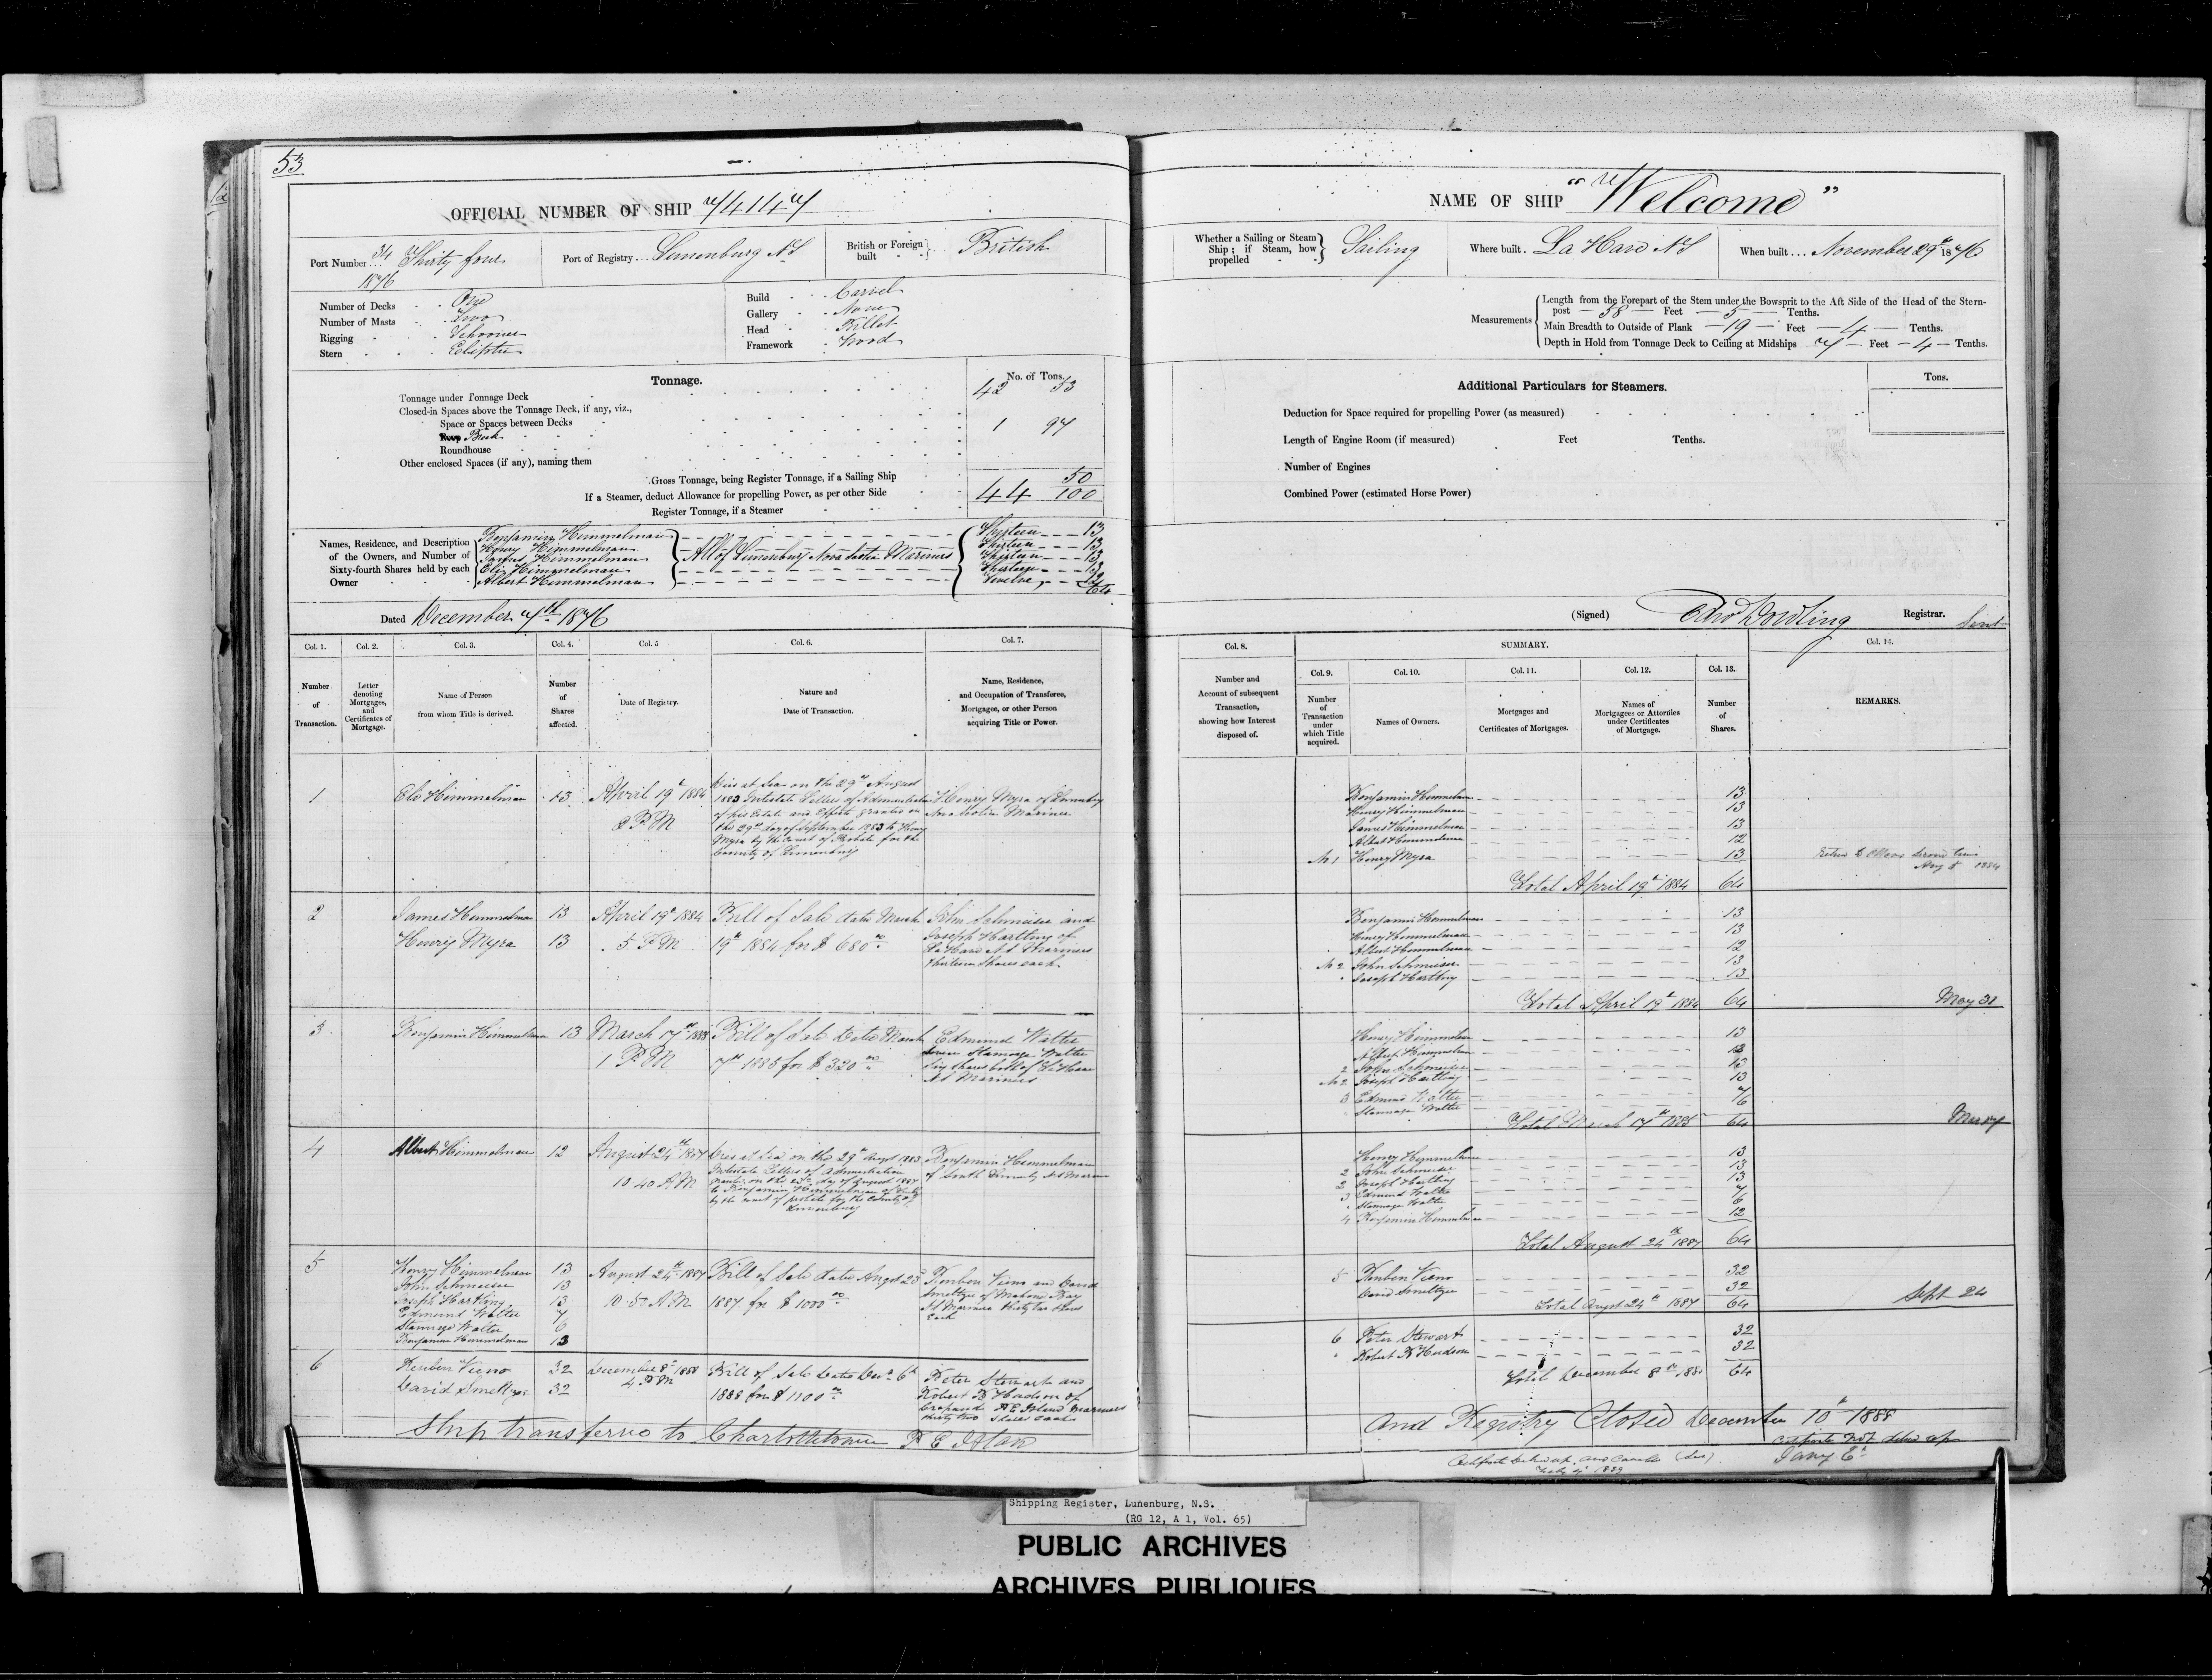 53
OFFICIAL NUMBER OF SHIP 74147
Port Number... 34 Thirty four
1876
Port of Registry... Lunenburg N.S
British or Foreign built British
Number of Decks One
Number of Masts Two
Rigging Schooner
Stern Eliptic
Build Carvel
Gallery None
Head Billet
Framework Wood
Tonnage.
No. of Tons.
Tonnage under Tonnage Deck 42 53
Closed-in Spaces above the Tonnage Deck, if any, viz.,
Space or Spaces between Decks
Poop Break 1 97
Roundhouse
Other enclosed Spaces (if any), naming them
Gross Tonnage, being Register Tonnage, if a Sailing Ship
44 50/100
If a Steamer, deduct Allowance for propelling Power, as per other Side
Register Tonnage, if a Steamer
Names, Residence, and Description of the Owners, and Number of Sixty-fourth Shares held by each Owner
Benjamin Himmelman Thirteen 13
Henry Himmelman Thirteen 13
James Himmelman All of Lunenburg Nova Scotia Mariners Thirteen 13
Eli Himmelman Thirteen 13
Albert Himmelman Twelve 12
64
Dated December 7th 1876
Col. 1. Col. 2. Col. 3. Col. 4. Col. 5 Col. 6. Col. 7.
Number of Transaction.
Letter denoting Mortgages, and Certificates of Mortgage.
Name of Person from whom Title is derived.
Number of Shares affected.
Date of Registry.
Nature and Date of Transaction.
Name, Residence, and Occupation of Transferee, Mortgagee, or other Person acquiring Title or Power.
1 Eli Himmelman 13 April 19th 1884
8 P.M
Dies at Sea on the 29th August
1883 Intestate Letters of Administration
of his Estate and Effects granted on
the 29th day of September 1883 to Henry
Myra by the Court of Probate for the
County of Lunenburg
Henry Myra of Lunenburg
Nova Scotia Mariner
2 James Himmelman 13 April 19th 1884 Bill of Sale dated March
Henry Myra 13 5 P M 19th 1884 for $ 680 00
John Schmeiser and
Joseph Hartling of
La Have N S Mariners
thirteen shares each
3 Benjamin Himmelman 13 March 17th 1885 Bill of Sale Dated March
1 P M 7th 1885 for $ 320 00
Edmund Walter
seven Stannage Walter
Six shares both of La Have
N S Mariners
4 Albert Himmelman 12 August 24th 1887
10 40 A M
Dies at Sea on the 29th Augst 1883
Intestate Letters of Administration
by the court of probate for the County of
Lunenburg
Benjamin Himmelman
of South
5 Henry Himmelman 13
John Schmeiser 13
Joseph Hartling 13
Edmund Walter 7
Stannage Walter 6
Benjamin Himmelman 13
August 24th 1887
10 50 A M
Bill of Sale dated Augst 23d
1887 for $ 1000 00
Reuben Vieno and David
Smeltzer of Mahone Bay
N S Mariners thirty two shares
Each
6 Reuben Vieno 32
David Smeltzer 32
December 8th 1888
4 P M
Bill of Sale Dated Decr 6th
1888 for $ 1100 00
Peter Stewart and
Robert B Hudson of
Crapaud P E Island Mariners
thirty two shares each
Ship transferred to Charlottetown P E Island
NAME OF SHIP "Welcome"
Whether a Sailing or Steam Ship; if Steam, how propelled Sailing
Where built . La Have N S
When built... November 29th 1876
Measurements
Length from the Forepart of the Stem under the Bowsprit to the Aft Side of the Head of the Stern-
post 58 Feet 5 Tenths.
Main Breadth to Outside of Plank 19 Feet 4 Tenths.
Depth in Hold from Tonnage Deck to Ceiling at Midships 7 Feet 4 Tenths.
Additional Particulars for Steamers.
Tons.
Deduction for Space required for propelling Power (as measured)
Length of Engine Room (if measured) Feet Tenths.
Number of Engines
Combined Power (estimated Horse Power)
(Signed) Edw Dowling Registrar. Sent
Col. 8. SUMMARY. Col. 14.
Col. 9. Col. 10. Col. 11. Col. 12. Col. 13.
Number and Account of subsequent Transaction, showing how Interest disposed of.
Number of Transaction under which Title acquired.
Names of Owners.
Mortgages and Certificates of Mortgages.
Names of Mortgagees or Attornies under Certificates of Mortgage.
Number of Shares.
REMARKS.
Benjamin Himmelman 13
Henry Himmelman 13
James Himmelman 13
Albert Himmelman 12
No 1 Henry Myra 13
Total April 19th 1884 64
Aug 8 1884
Benjamin Himmelman 13
Henry Himmelman 13
Albert Himmelman 12
No 2 John Schmeiser 13
" Joseph Hartling 13
Total April 19th 1884 64
May 31
Henry Himmelman 13
Albert Himmelman 12
2 John Schmeiser 13
No 2 Joseph Hartling 13
3 Edmund Walter 7
Stannage Walter 6
Total March 17th 1885 64
Henry Himmelman 13
2 John Schmeiser 13
2 Joseph Hartling 13
3 Edmund Walter 7
" Stannage Walter 6
4 Benjamin Himmelman 12
Total August 24th 1887 64
5 Reuben Vieno 32
David Smeltzer 32
Total Augst 24th 1887 64
Sept 24
6 Peter Stewart 32
" Robert B Hudson 32
Total December 8th 1888 64
And Registry Closed December 10th 1888
Certificate not delivd up
Certificate delivd up and Cancelled
Feby 4th 1889
Shipping Register, Lunenburg, N.S.
(RG 12, A 1, Vol. 65)
PUBLIC ARCHIVES
ARCHIVES PUBLIQUES